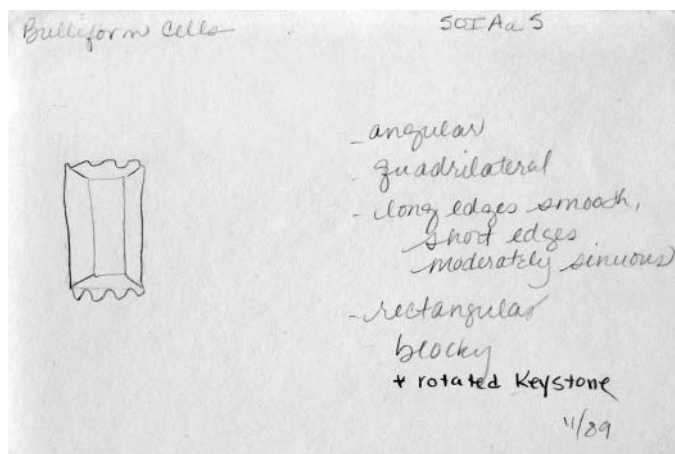 Bulliform Cells
50I Aa 5
- angular
- quadrilateral
- long edges smooth,
short edges
moderately sinuous
- rectangular
blocky
+ rotated Keystone
11/89